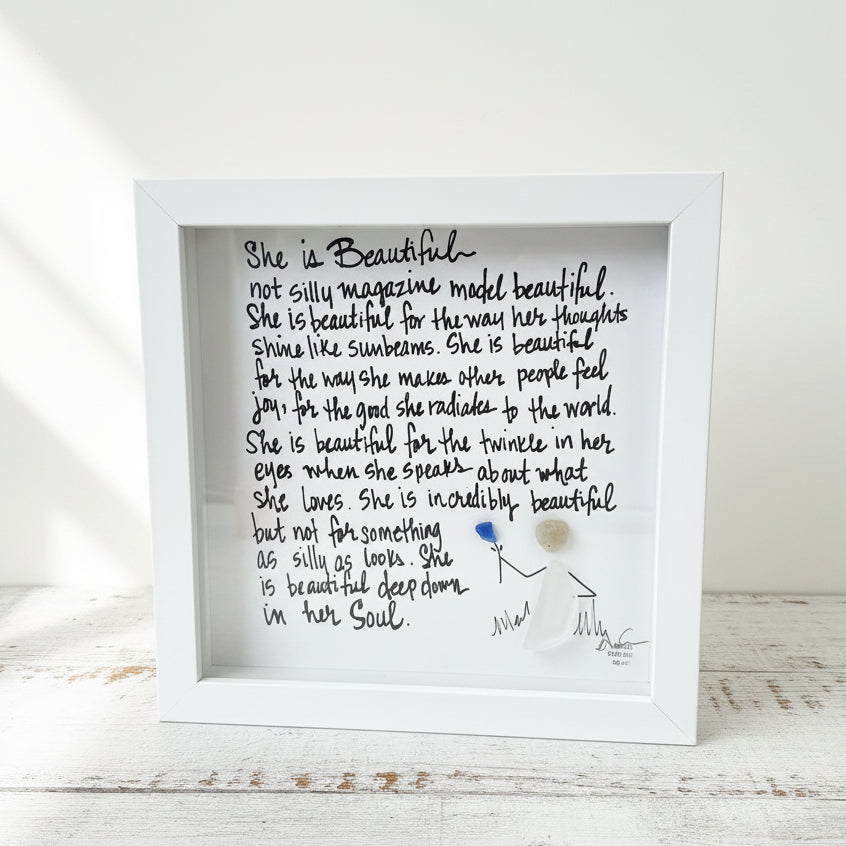 She is Beautiful
not silly magazine model beautiful.
She is beautiful for the way her thoughts
shine like sunbeams. She is beautiful
for the way she makes other people feel
joy, for the good she radiates to the world.
She is beautiful for the twinkle in her
eyes when she speaks about what
she loves. She is incredibly beautiful
but not for something
as silly as looks. She
is beautiful deep down
in her Soul.